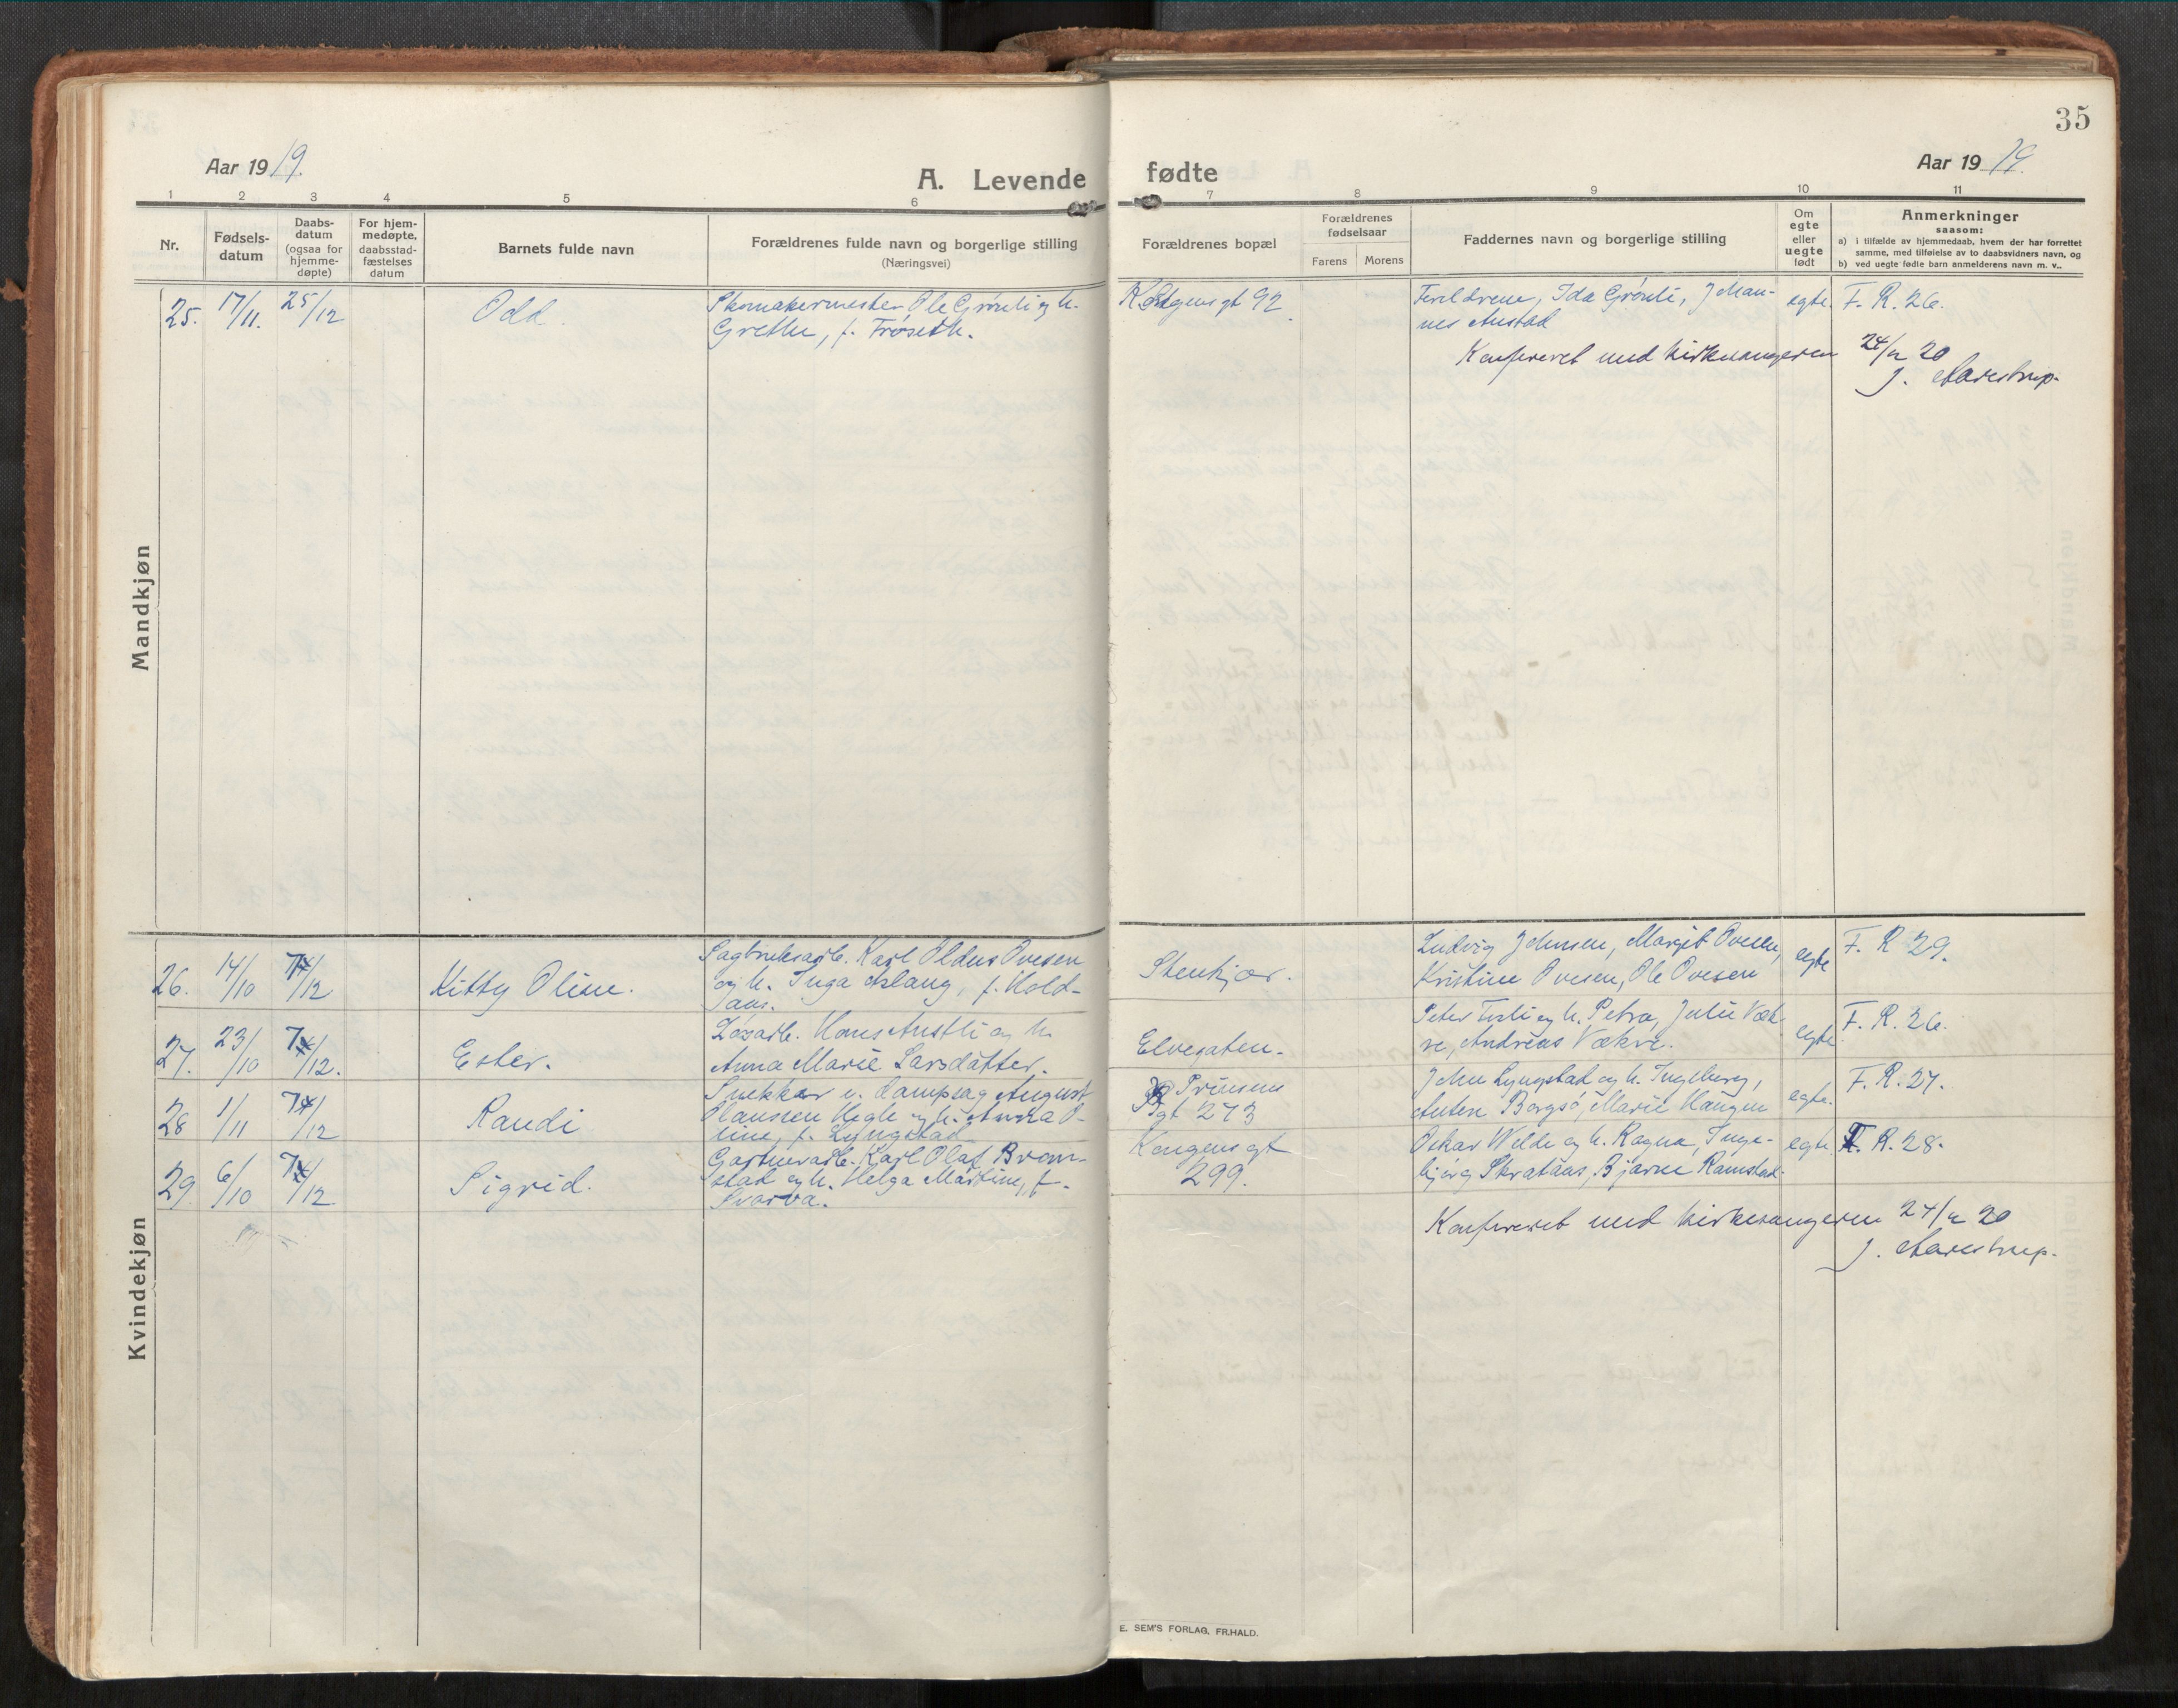 35
Aar 1919.
A. Levende fødte
Aar 1919.
1 2 3 4 5 6 7 8 9 10 11
Nr.
Fødsels-
datum
Daabs-
datum
(ogsaa for
hjemme-
døpte)
For hjem-
medøpte,
daabsstad-
fæstelses
datum
Barnets fulde navn
Forældrenes fulde navn og borgerlige stilling
(Næringsvei)
Forældrenes bopæl
Forældrenes
fødselsaar
Farens Morens
Faddernes navn og borgerlige stilling
Om
egte
eller
uegte
født
Anmerkninger
saasom:
a) i tilfælde av hjemmedaab, hvem der har forrettet
samme, med tilføielse av to daabsvidners navn, og
b) ved uegte fødte barn anmelderens navn m. v..
Mandkjøn
25. 17/11. 25/12 Odd.
Skomakermester Ole Grønli og h.
Grethe, f. Trøseth.
gt 92
Forældrene, Ida Grønli, Johan-
nes Austad
egte. F. R. 26.
Konfereret med kirkesangeren 24/2 20
J. Aarestrup.
Kvindekjøn
26. 14/10 /12 Kitty Oline.
Sagbruksarb. Karl Oldus Ovesen
og h. Inga Aslaug, f. Hold-
aas.
Stenkjær.
Ludvig Johnsen, Margit Ovesen,
Kristine Ovesen, Ole Ovesen
egte F. R 29.
27. 23/10 /12. Ester.
Løsarb. Hans Austli og h.
Anna Marie Larsdatter.
Elvegaten.
Peter Forli og h. Petra, Julie Væk-
re, Andreas Vækre.
egte F. R. 26.
28 1/11 /12 Randi
Snekker v. dampsag August
Olaussen Hegle og h. Anna O-
line, f. Lyngstad
Prinsens
gt 273
John Lyngstad og h. Ingeborg,
Anton Borgsø, Marie Haugen
egte. F. R. 27.
29. 6/10 /12 Sigrid.
Gartnerarb. Karl Olaf Brom-
stad og h. Helga Martine, f.
Svarva.
Kongens gt
299.
Oskar Welde og h. Ragna, Inge-
bjørg Skrataas, Bjarne Ramstad
egte F. R. 28.
Konfereret med kirkesangeren 24/2 20
J. Aarestrup.
E. SEM'S FORLAG, FR.HALD.